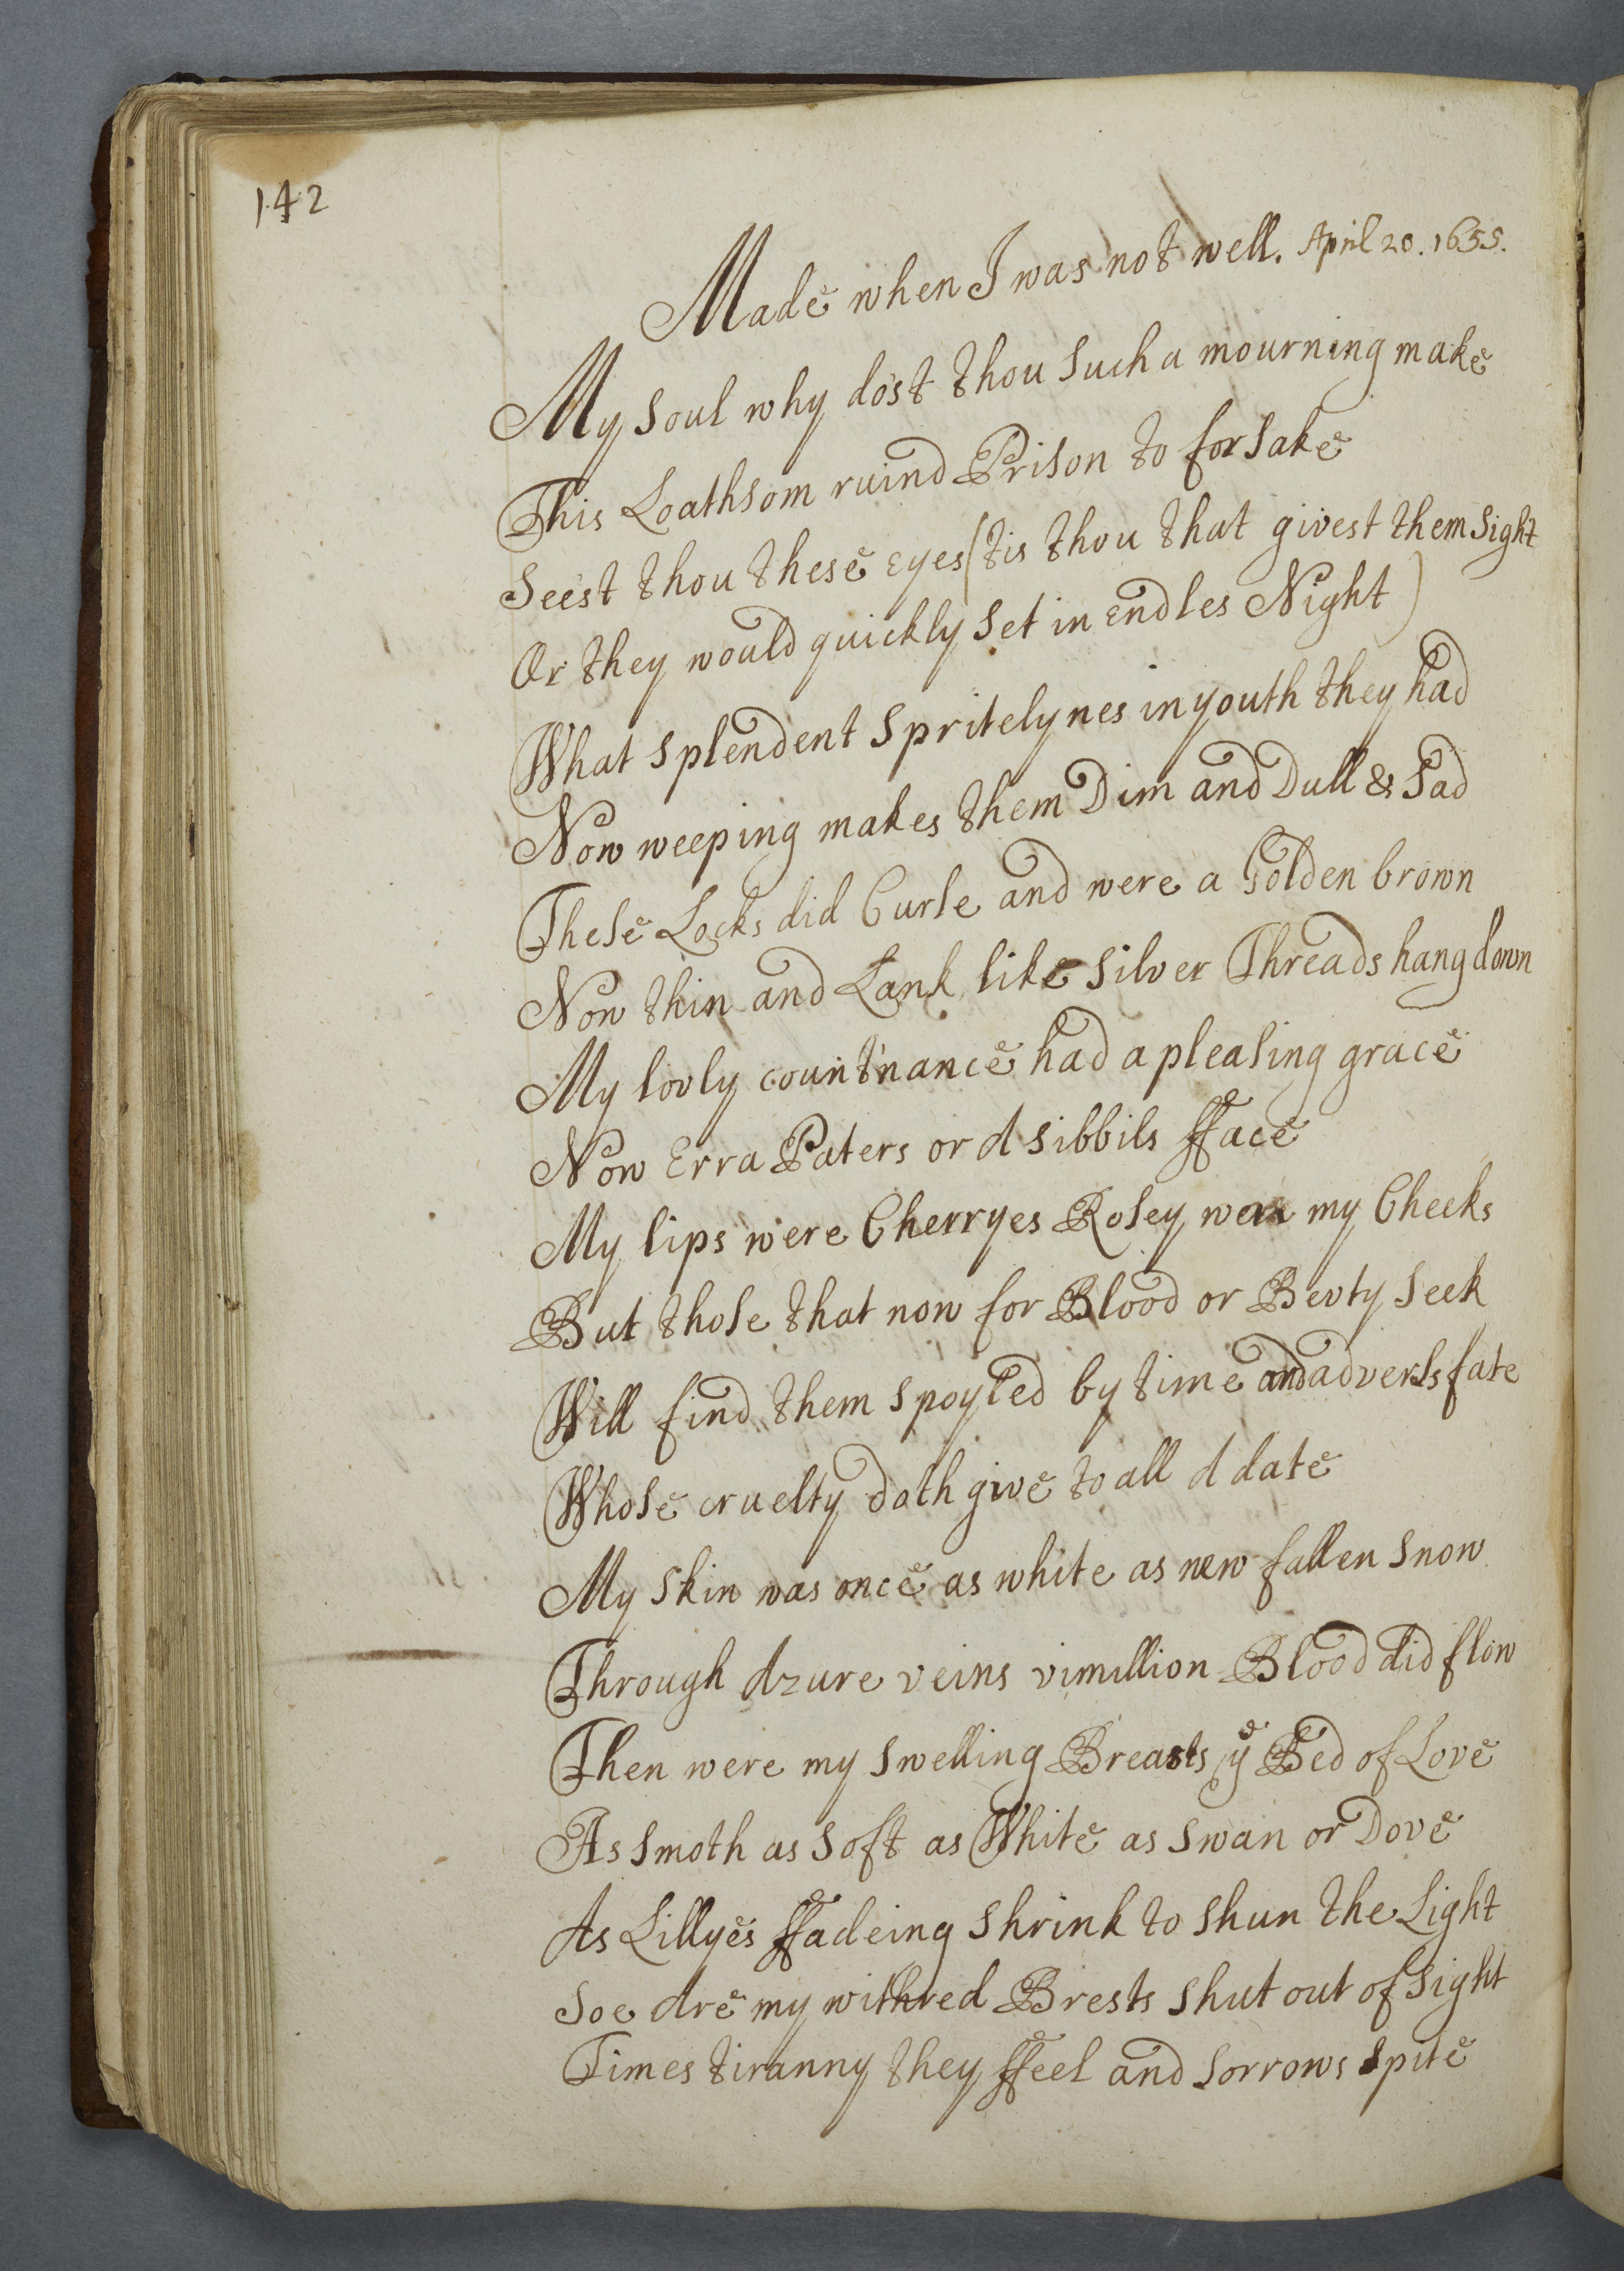 142
Made when I was not well. April 20. 1655.
My Soul why dost thou Such a mourning make
This Loathsom ruind Prison to forsake
Seest thou these eyes (tis thou that givest them Sight
Or they would quickly Set in endles Night)
What splendent Spritelynes in youth they had
Now weeping makes them Dim and Dull & Sad
These Locks did Curle and were a Golden brown
Now thin and Lank like Silver Threads hang down
My lovly count'nance had a pleasing grace
Now Erra Paters or A Sibbils fface
My lips were Cherryes Rosey were my Cheeks
But those that now for Blood or Bevty Seek
Will find them spoyled by time and advers fate
Whose cruelty doth give to all A date
My Skin was once as white as new fallen Snow
Through Azure veins vimillion Blood did flow
Then were my Swelling Breasts ye Bed of Love
As Smoth as Soft as White as Swan or Dove
As Lillyes ffadeing Shrink to Shun the Light
Soe Are my withred Brests Shut out of Sight
Times tiranny they ffeel and Sorrows Spite